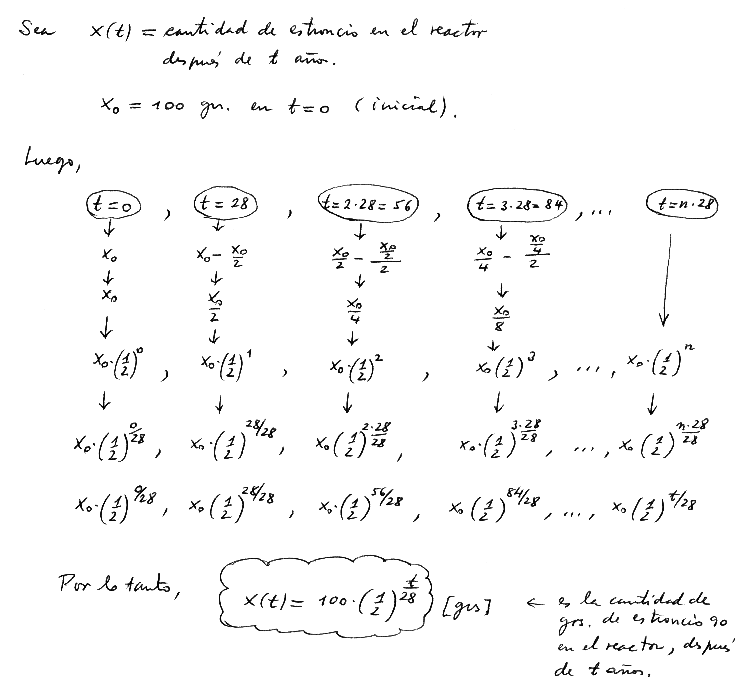 Sea x(t) = cantidad de estroncio en el reactor
después de t años.
x₀ = 100 gr. en t=0 (inicial).
Luego,
t=0 , t=28 , t=2·28=56 , t=3·28=84 , ... t=n·28
↓ ↓ ↓ ↓
x₀ x₀ - x₀/2 x₀/2 - (x₀/2)/2 x₀/4 - (x₀/4)/2
↓ ↓ ↓ ↓
x₀ x₀/2 x₀/4 x₀/8
↓ ↓ ↓ ↓ ↓
x₀·(1/2)^0 , x₀·(1/2)^1 , x₀·(1/2)^2 , x₀(1/2)^3 , ..., x₀·(1/2)^n
↓ ↓ ↓ ↓ ↓
x₀·(1/2)^(0/28) , x₀·(1/2)^(28/28) , x₀(1/2)^(2·28/28) , x₀·(1/2)^(3·28/28) , ..., x₀(1/2)^(n·28/28)
x₀·(1/2)^(0/28) , x₀·(1/2)^(28/28) , x₀·(1/2)^(56/28) , x₀(1/2)^(84/28) , ..., x₀(1/2)^(t/28)
Por lo tanto, x(t) = 100·(1/2)^(t/28) [grs] ← es la cantidad de
grs. de estroncio 90
en el reactor, después
de t años.